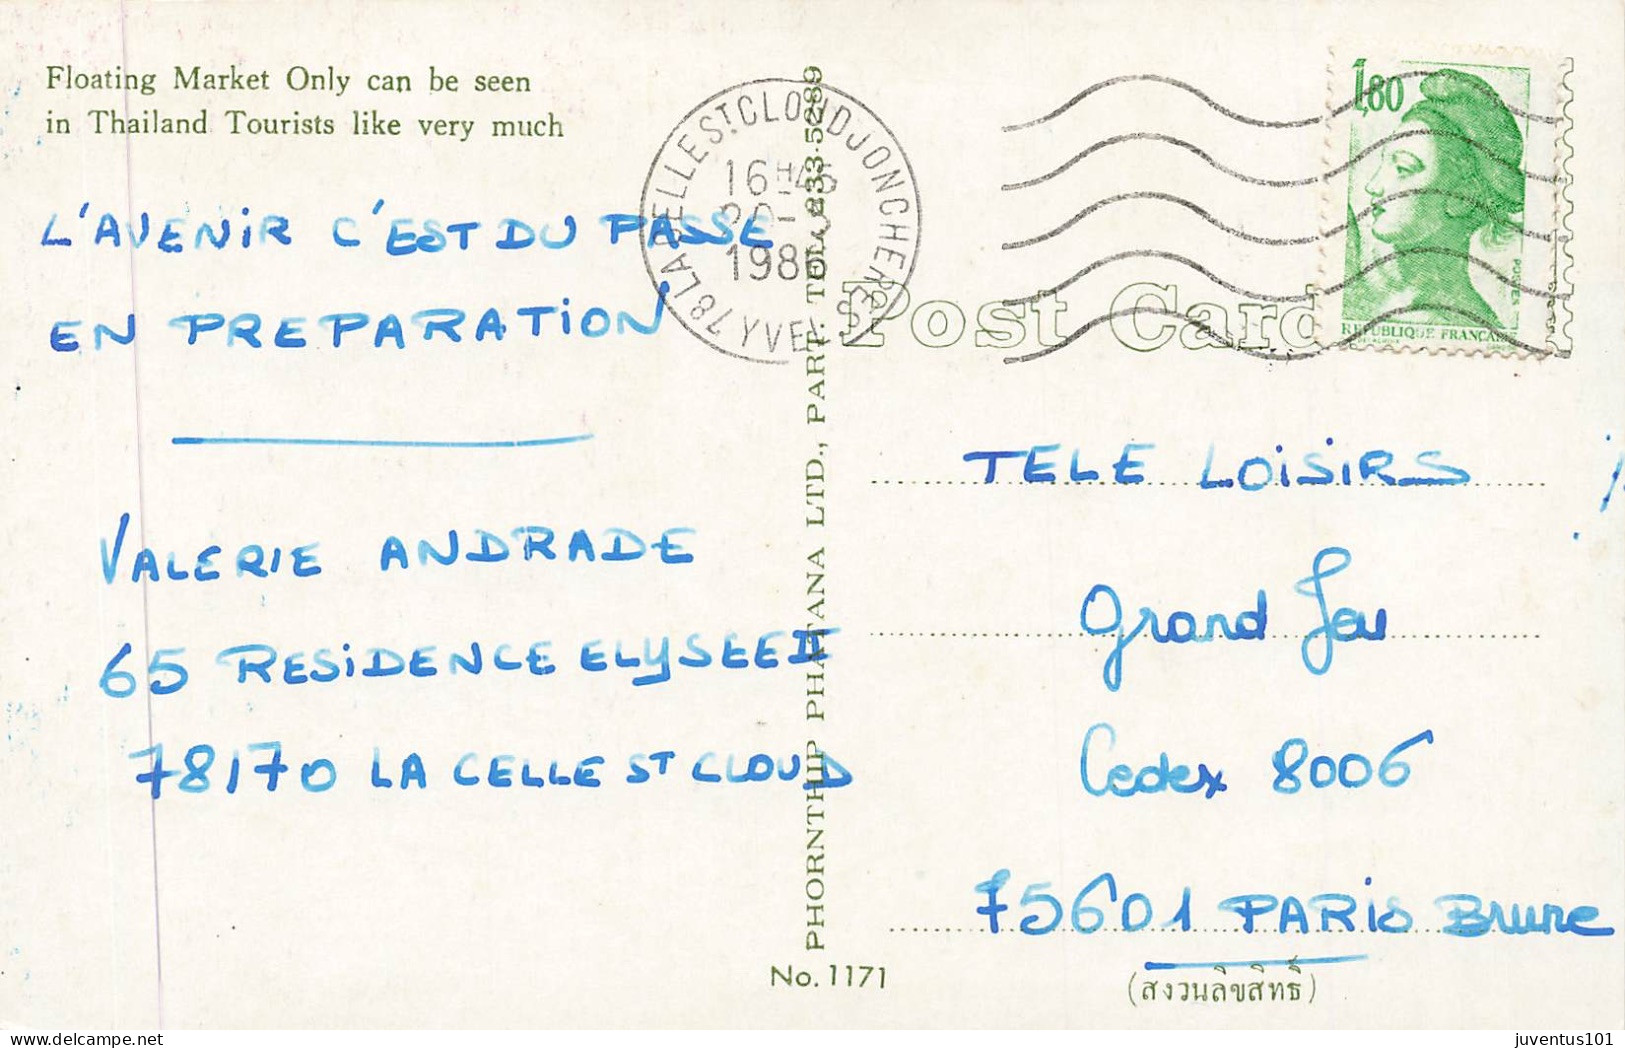 Floating Market Only can be seen
in Thailand Tourists like very much
L'AVENIR C'EST DU PASSE
EN PREPARATION
VALERIE ANDRADE
65 RESIDENCE ELYSEE II
78170 LA CELLE ST CLOUD
16H45
1986
78 LA CELLE ST CLOUD JONCHERE
YVELINES
PHORNTHIP PHATANA LTD., PART. TEL. 233-5289
No. 1171
Post Card
1,80
POSTES
REPUBLIQUE FRANÇAISE
TELE LOISIRS
Grand Jeu
Cedex 8006
75601 PARIS Brune
(สงวนลิขสิทธิ์)
juventus101